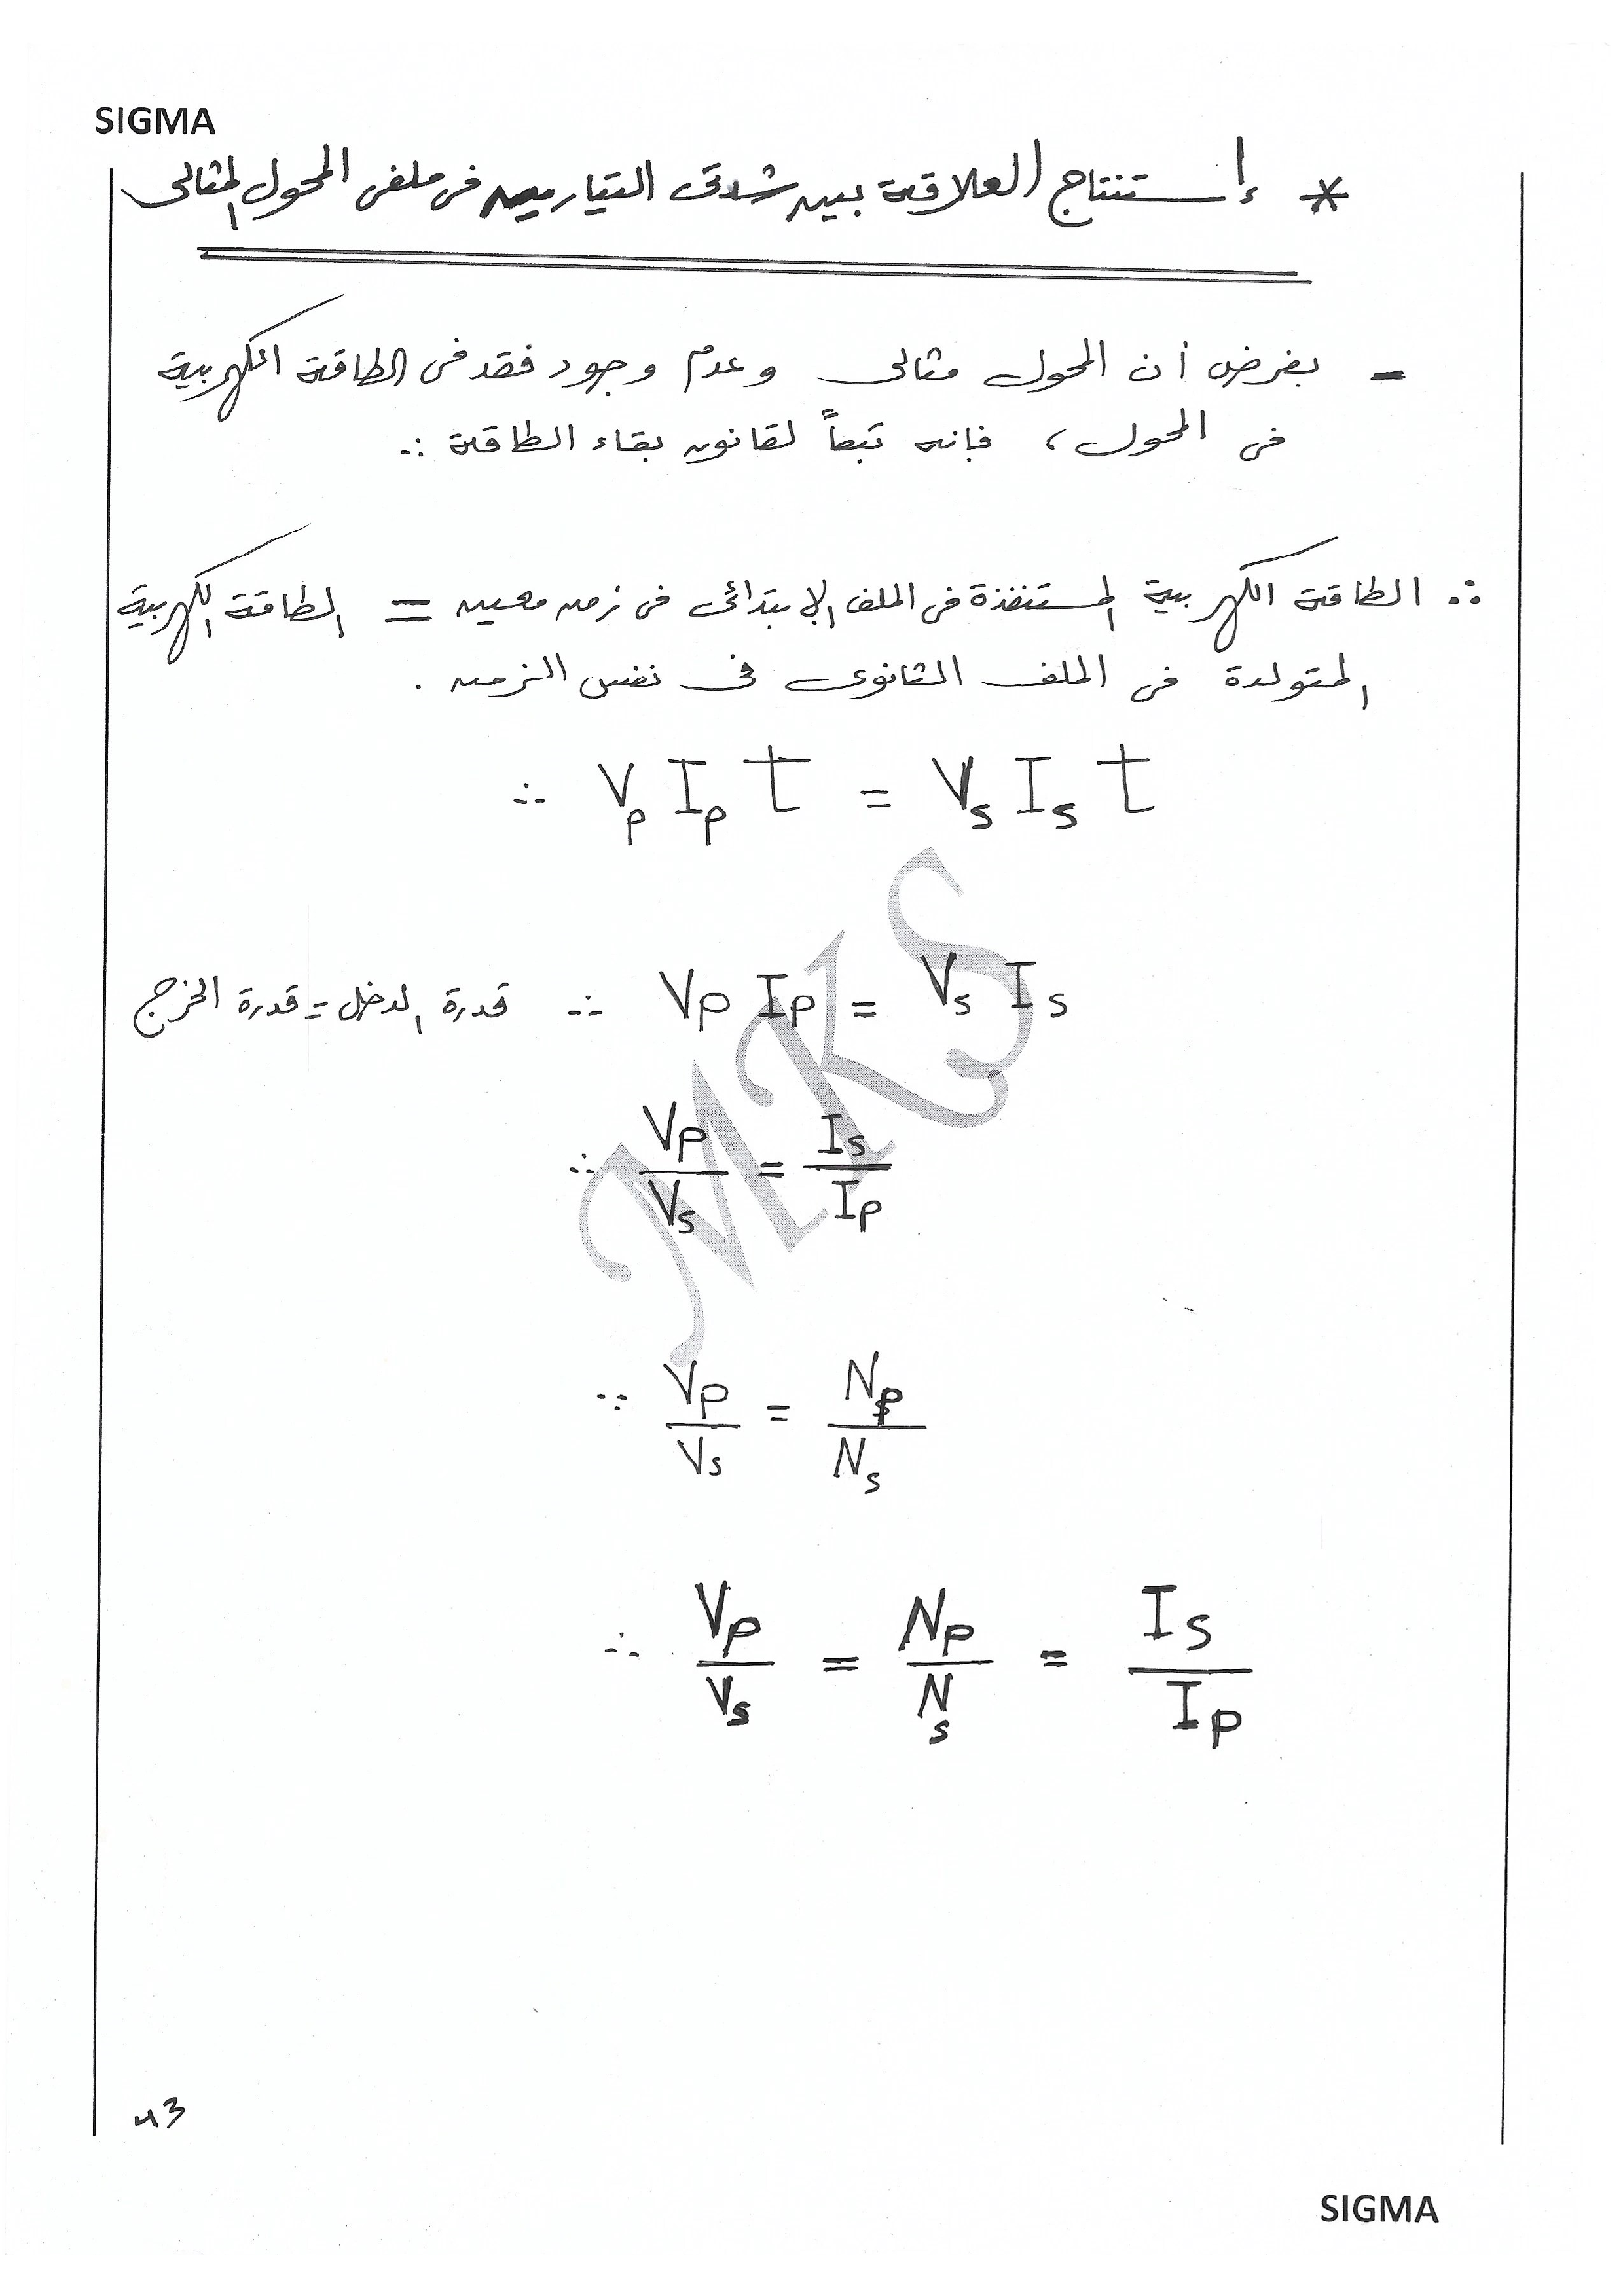 SIGMA
* إستنتاج العلاقة بين شدتى التيارين فى ملفى المحول المثالى
- بفرض أن المحول مثالى وعدم وجود فقد فى الطاقة الكهربية
فى المحول، فإنه تبعاً لقانون بقاء الطاقة :-
∴ الطاقة الكهربية المستنفذة فى الملف الإبتدائى فى زمن معين = الطاقة الكهربية
المتولدة فى الملف الثانوى فى نفس الزمن .
∴ Vp Ip t = Vs Is t
∴ Vp Ip = Vs Is قدرة الدخل = قدرة الخرج
∴ Vp/Vs = Is/Ip
∵ Vp/Vs = Np/Ns
∴ Vp/Vs = Np/Ns = Is/Ip
MKS
43
SIGMA